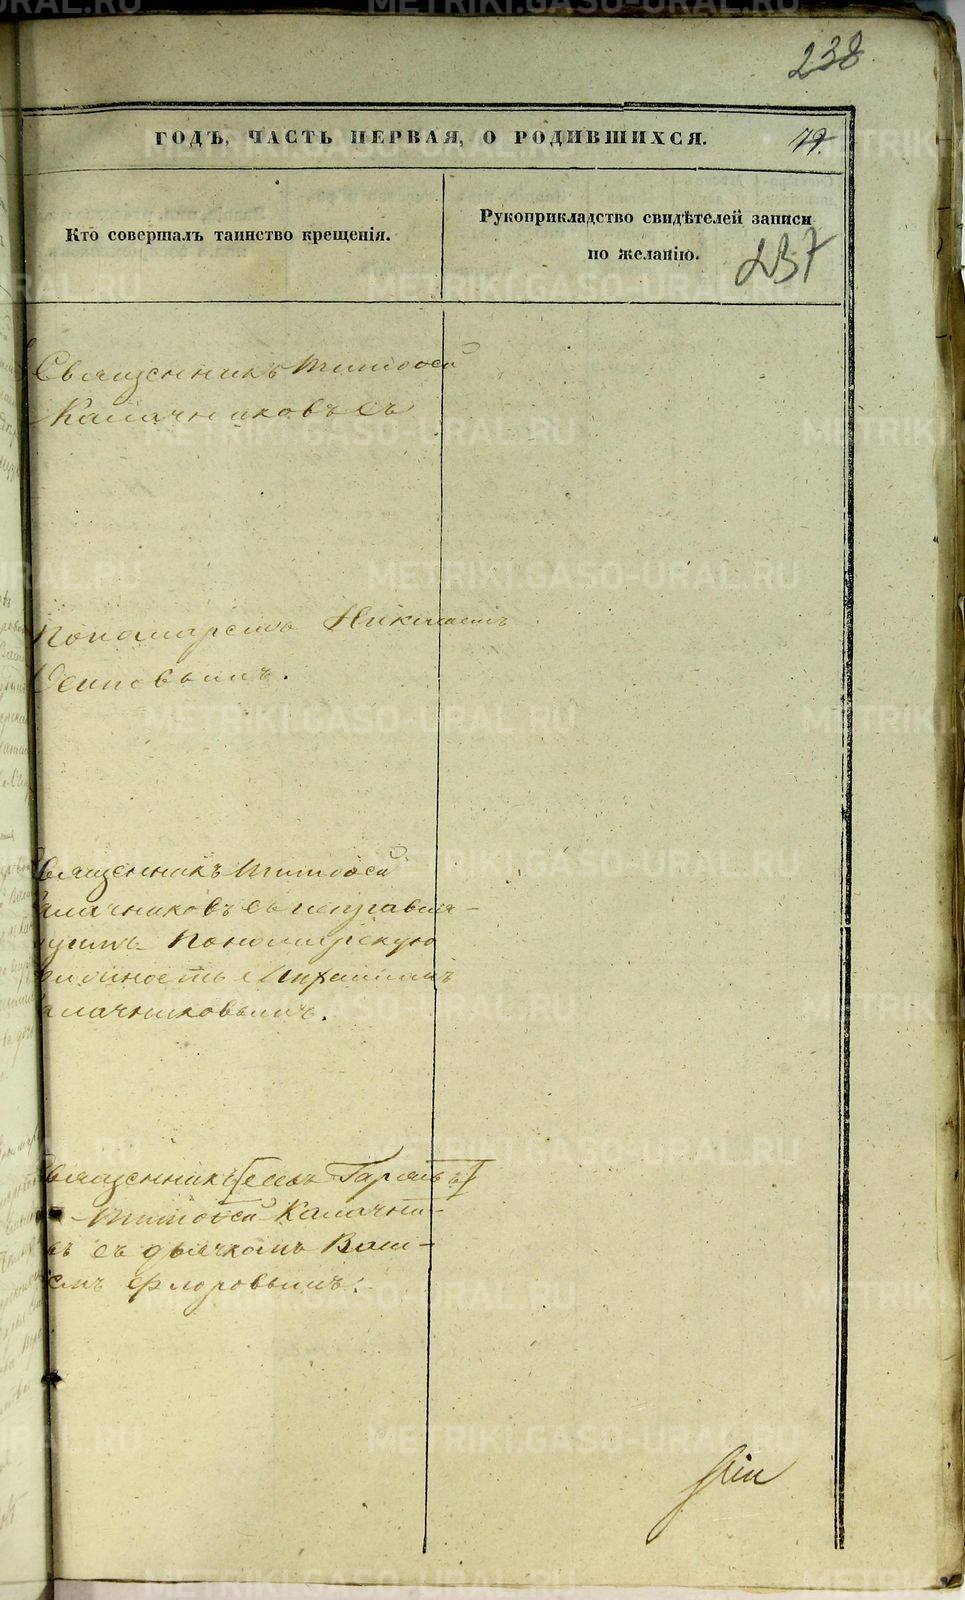 238
ГОДЪ, ЧАСТЬ ПЕРВАЯ, О РОДИВШИХСЯ.
79.
Кто совершалъ таинство крещенія.
Рукоприкладство свидѣтелей записи
по желанію.
237
Священникъ Тимофей
Калачниковъ съ
Пономаремъ Николаемъ
Осиповымъ.
вященникъ Тимофей
алачниковъ съ исправля-
ущимъ Пономарскую
олжность Михаиломъ
алачниковымъ.
вященникъ
Тимофей Калачни-
въ съ дьячкомъ Васи-
емъ Флоровымъ.
METRIKI.GASO-URAL.RU